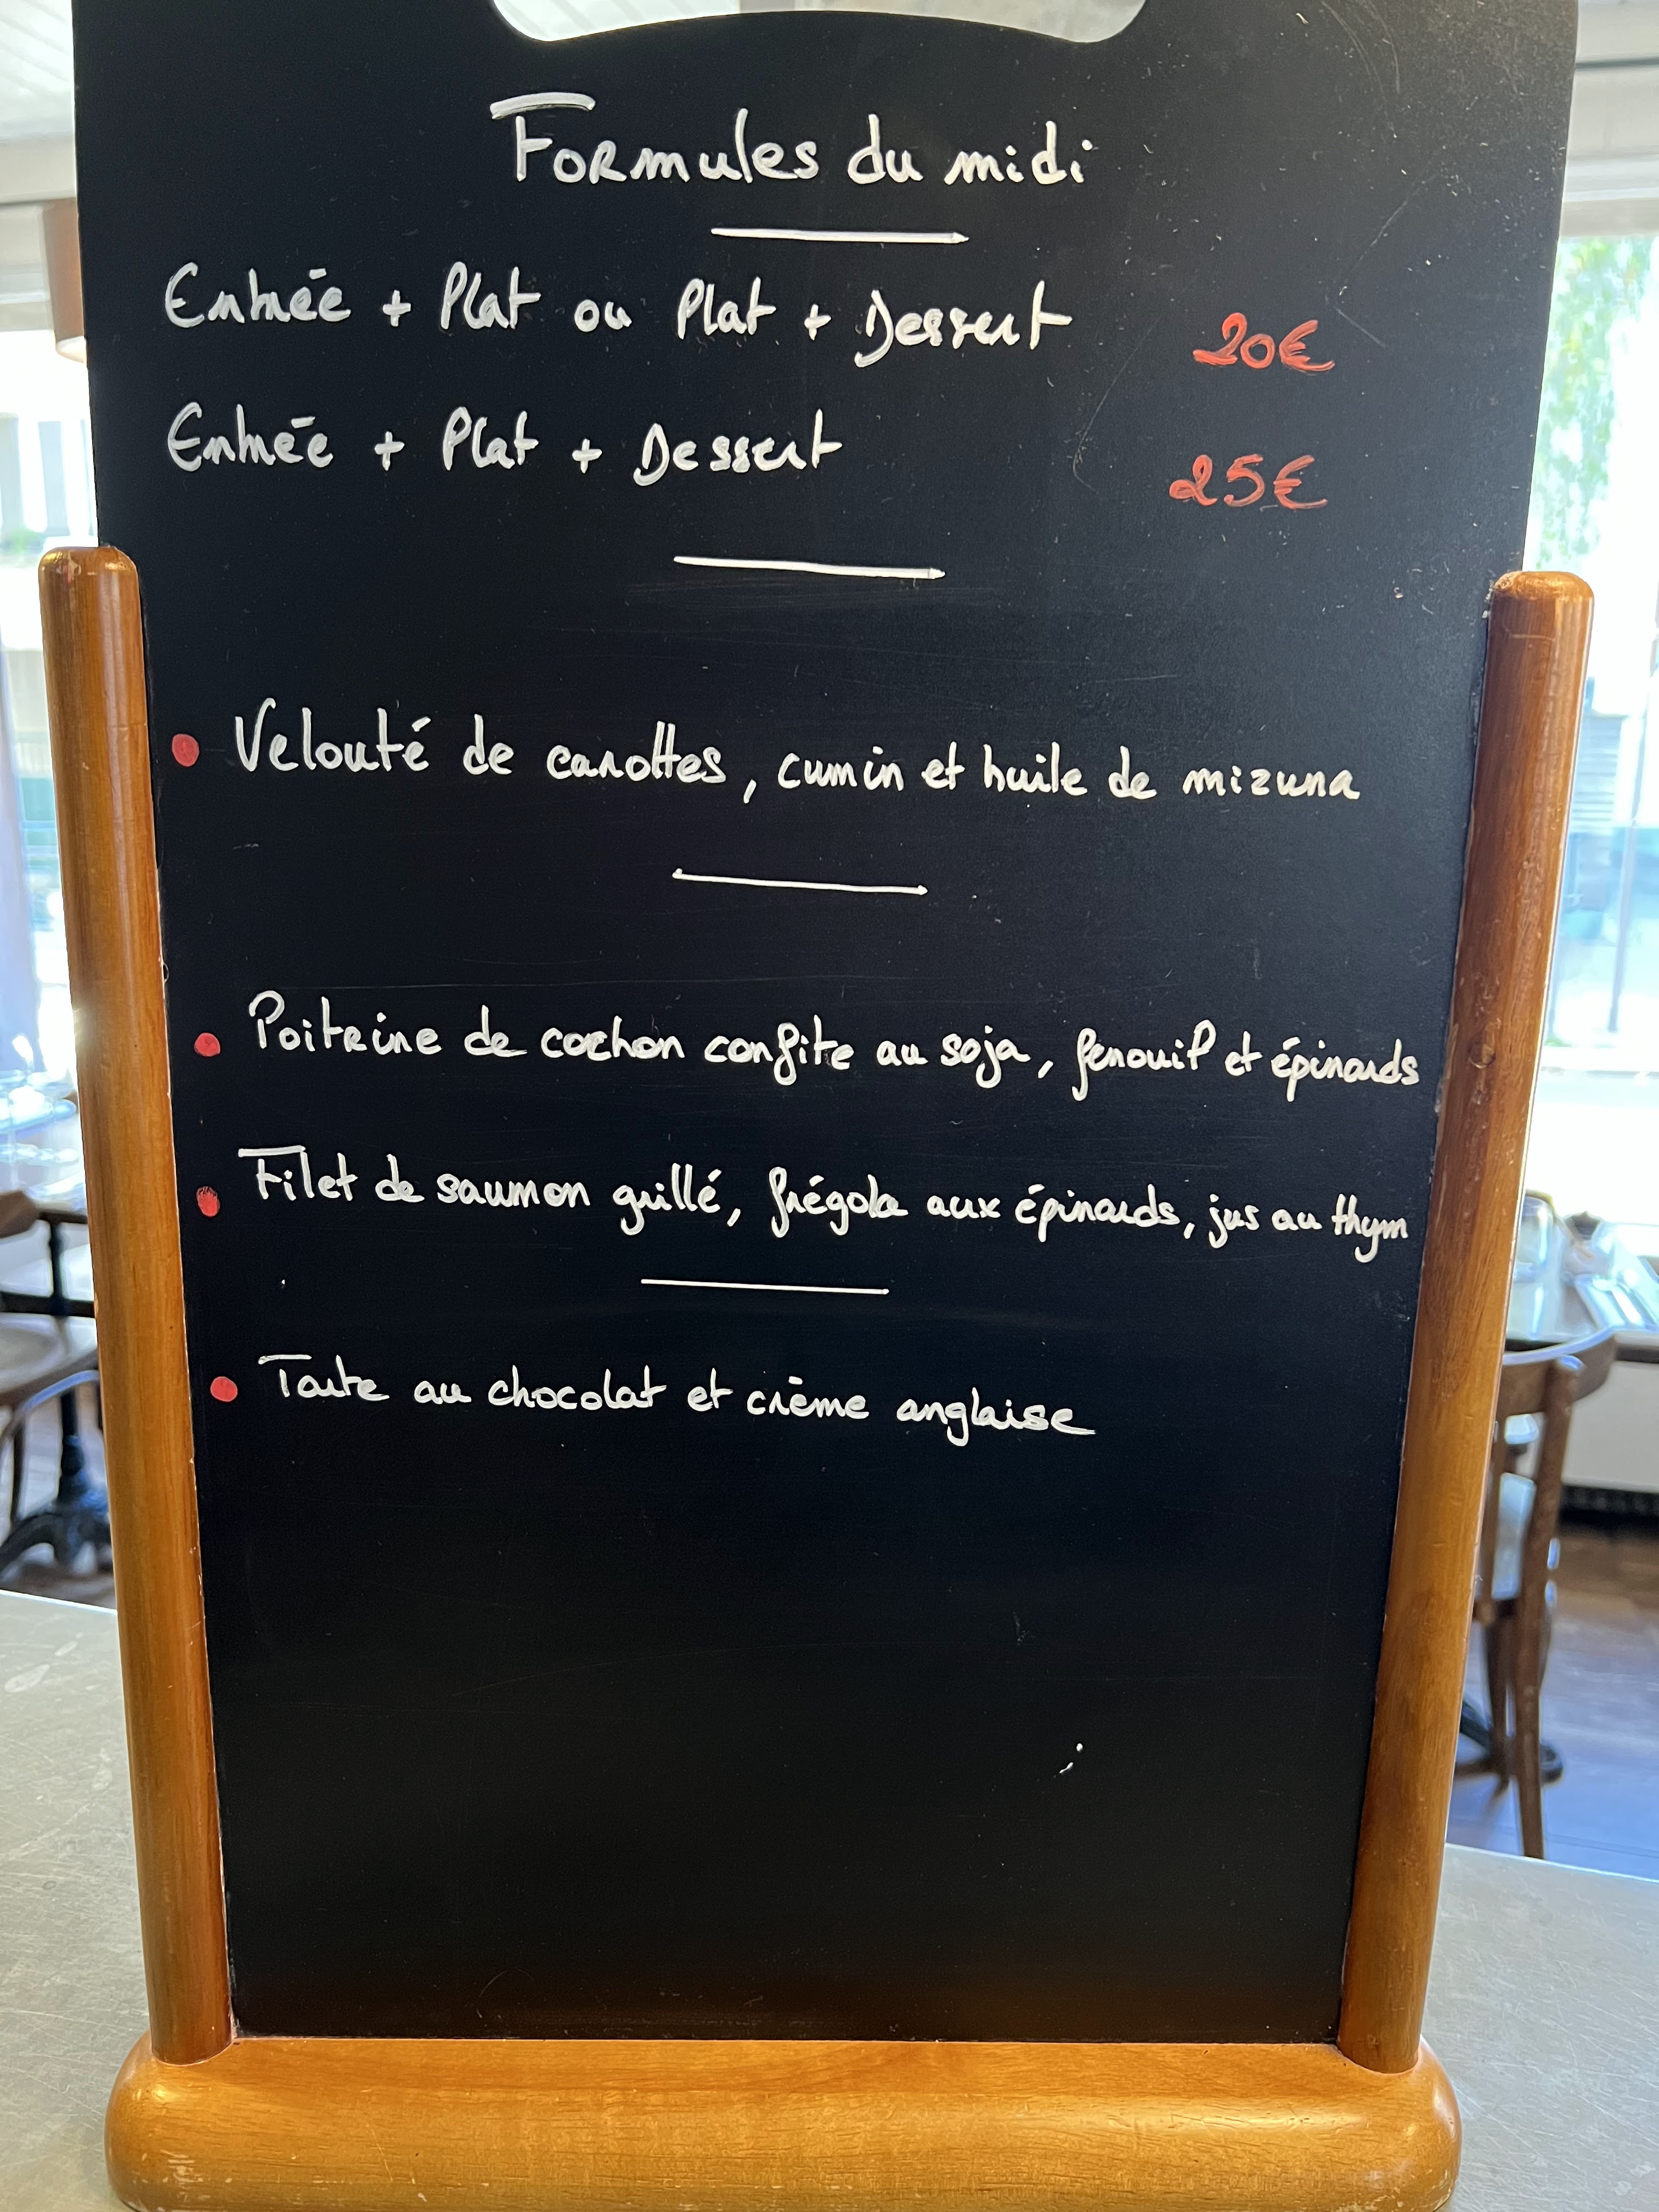 Formules du midi
Entrée + Plat ou Plat + Dessert 20€
Entrée + Plat + Dessert 25€
Velouté de carottes, cumin et huile de mizuna
Poitrine de cochon confite au soja, fenouil et épinards
Filet de saumon grillé, frégola aux épinards, jus au thym
Tarte au chocolat et crème anglaise